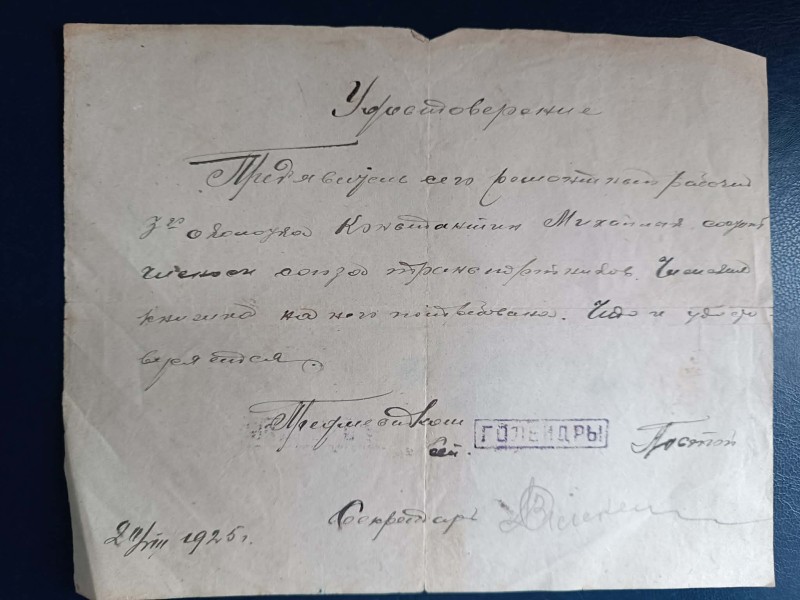 Удостоверение
Предявитель сего ремонтный рабочий
3го околотка Константин Михайлак состоит
членом союза транспортников. Членская
книжка на него потребована. Что и удосто-
веряется.
ГОЛЕНДРЫ
Секретарь
2/VIII 1925 г.